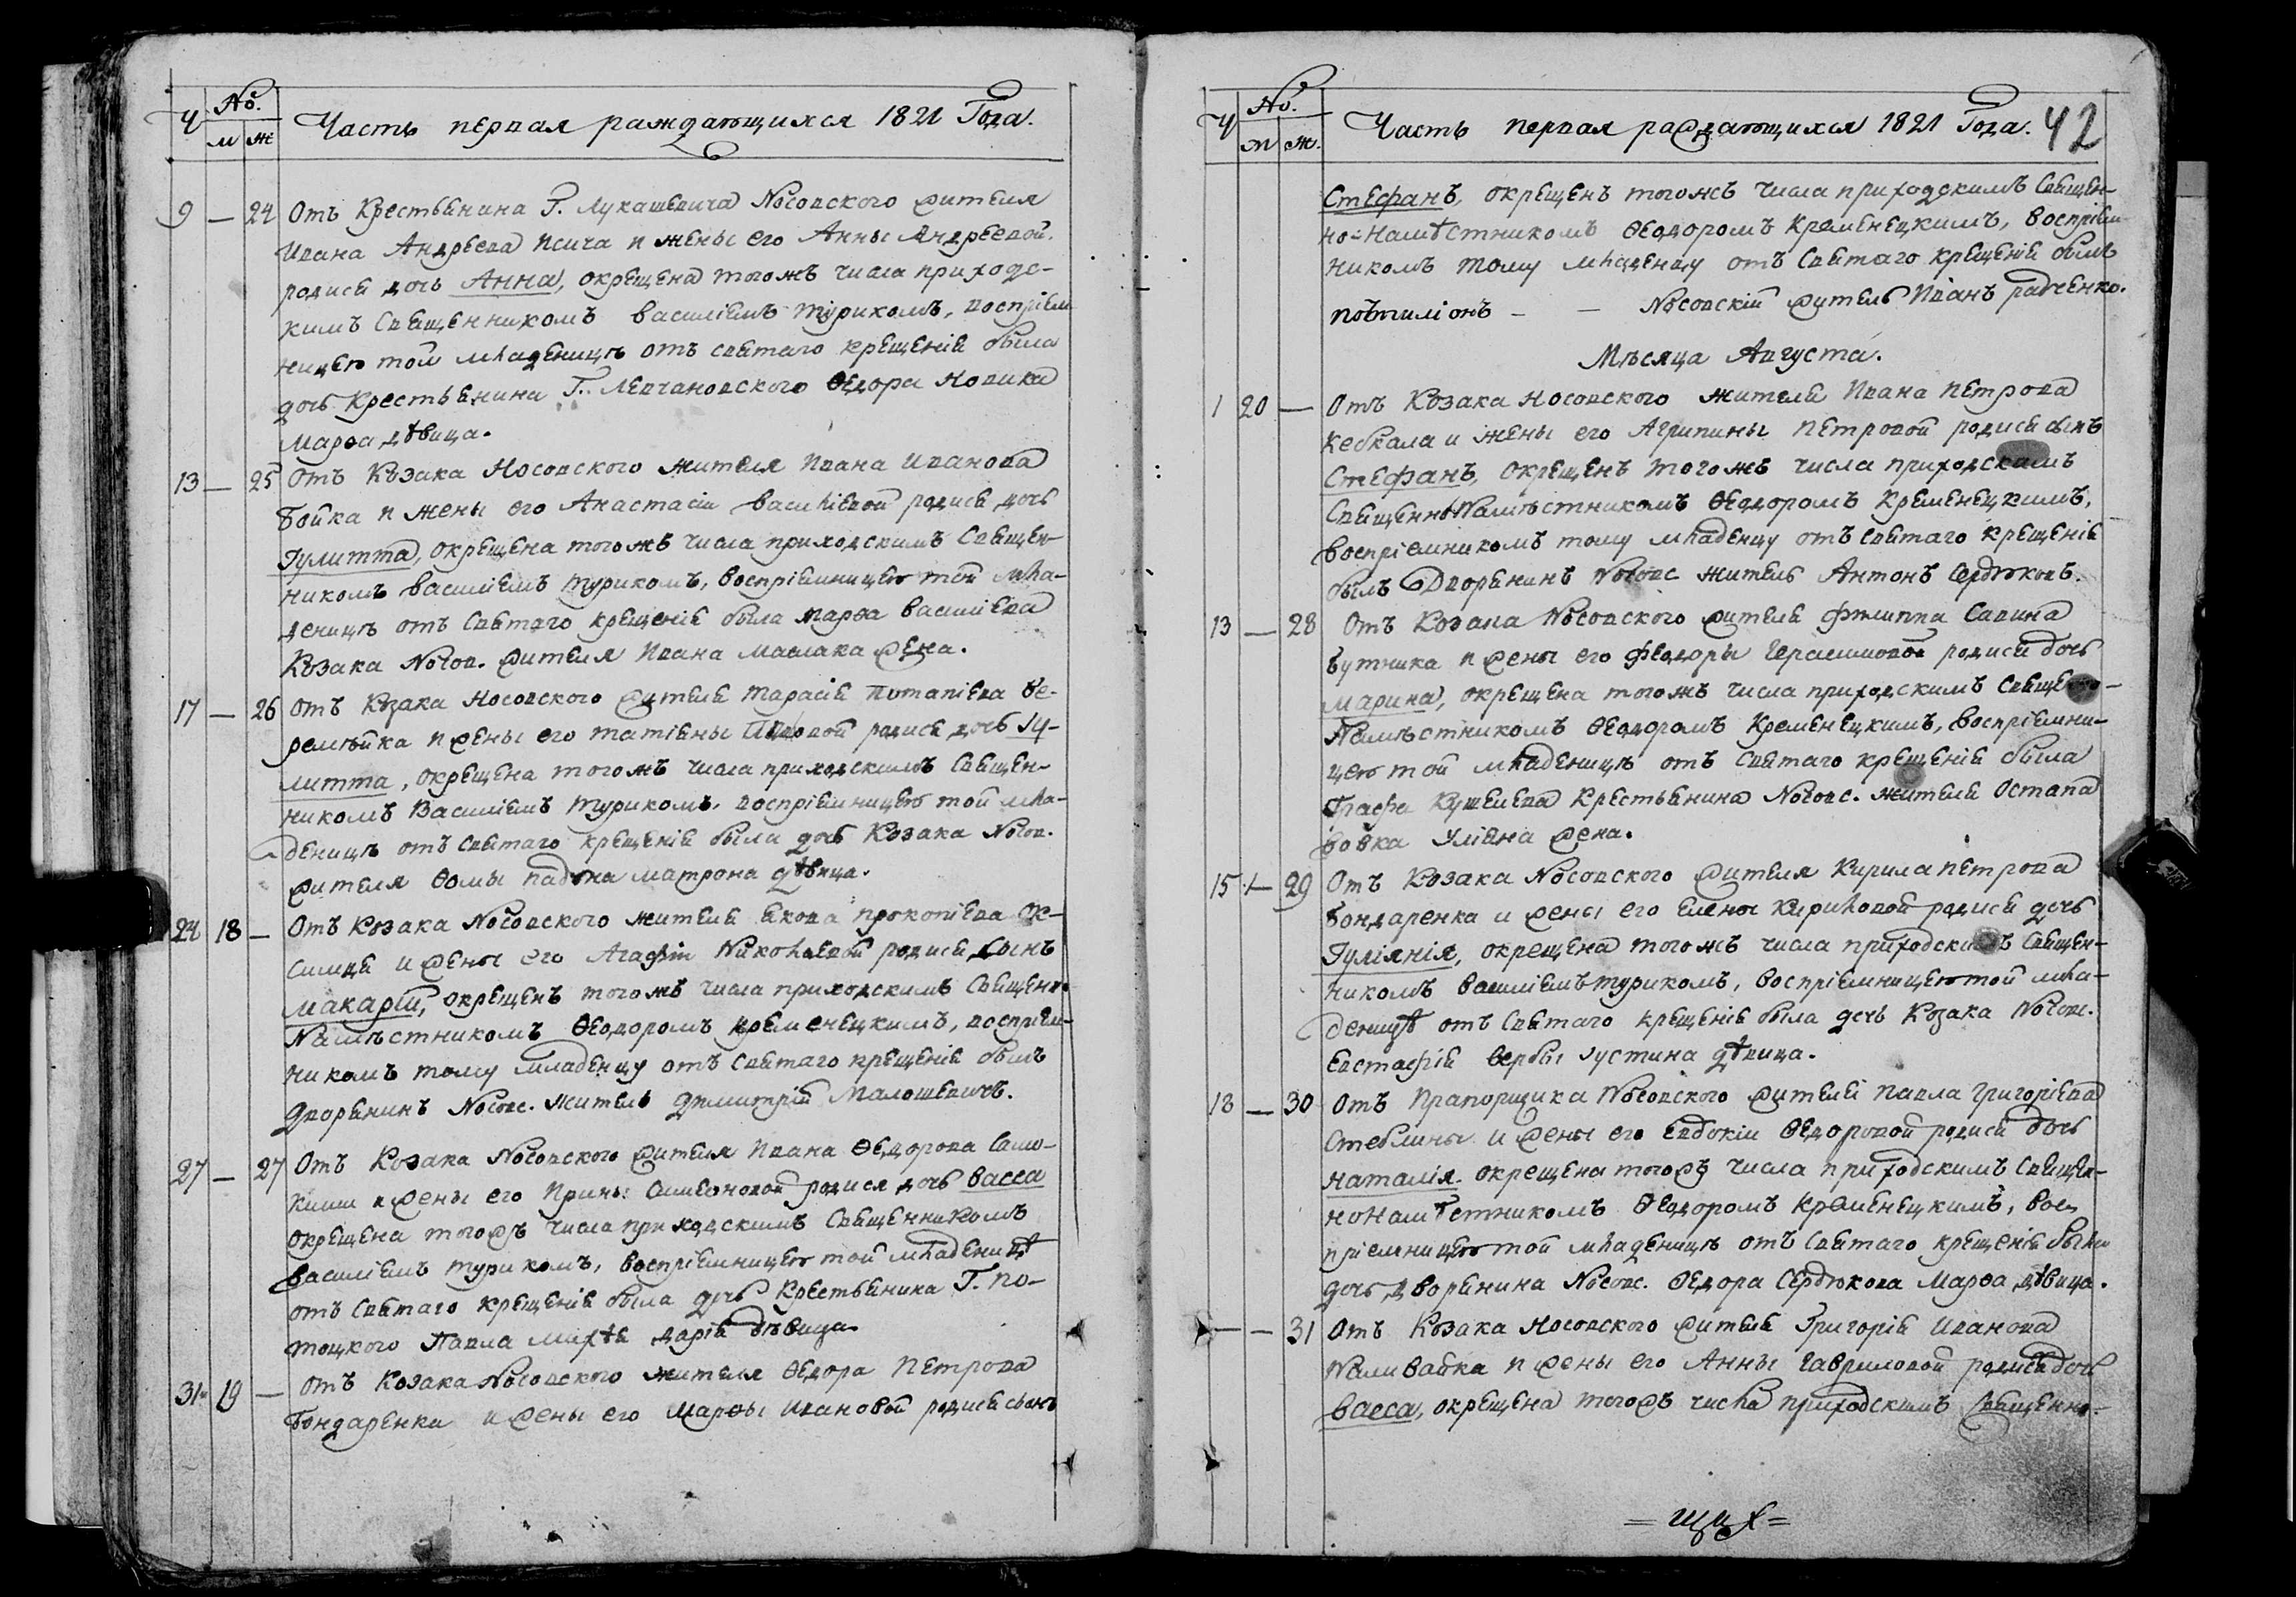 Ч No. М Ж
Часть первая раждающихся 1821 Года.
9 — 24 Отъ Крестьянина Г. Лукашевича Носовского жителя
Ивана Андреева Псича и жены его Анны Андреевой
родися дочь Анна, окрещена тогожъ числа приходс-
кимъ Священникомъ Василіемъ Турикомъ, воспріем
ницею той младеницѣ отъ святаго крещенія была
дочь Крестьянина Г. Левчановского Ѳедора Новика
Марѳа дѣвица.
13 — 25 Отъ Козака Носовского жителя Ивана Иванова
Бойка и жены его Анастасіи Василіевой родися дочь
Іулитта, окрещена тогожъ числа приходскимъ Священ-
никомъ Василіемъ Турикомъ, воспріемницею той мла-
деницѣ отъ святаго крещенія была Марѳа Василіева
Козака Носов. жителя Ивана Маслака жена.
17 — 26 Отъ Козака Носовского жителя Тарасія Потапіева Ве-
ремѣйка и жены его Татіаны родися дочь Іу-
литта, окрещена тогожъ числа приходскимъ Священ-
никомъ Василіемъ Турикомъ, воспріемницею той мла-
деницѣ отъ святаго крещенія была дочь Козака Носов.
жителя Ѳомы Матрона дѣвица.
24 18 — Отъ Козака Носовского жителя Якова Прокопіева Ок-
симця и жены его Агафіи Николаевой родися сынъ
Макарій, окрещенъ тогожъ числа приходскимъ Священно
Намѣстникомъ Ѳеодоромъ Кременецкимъ, воспріем-
никомъ тому младенцу отъ святаго крещенія былъ
Дворянинъ Носовс. житель Димитрій Малошевичъ.
27 — 27 Отъ Козака Носовского жителя Ивана Ѳедорова Само-
киши и жены его Ирины Симеоновой родися дочь Васса
окрещена тогожъ числа приходскимъ Священникомъ
Василіемъ Турикомъ, воспріемницею той младеницѣ
отъ святаго крещенія была дочь Крестьянина Г. По-
тоцкого Павла Михѣя Дарія дѣвица
31 19 — Отъ Козака Носовского жителя Ѳедора Петрова
Бондаренка и жены его Марѳы Ивановой родися сынъ
Ч No. М Ж.
Часть первая раждающихся 1821 Года. 42
Стефанъ, окрещенъ тогожъ числа приходскимъ Священ-
но-Намѣстникомъ Ѳеодоромъ Кременецкимъ, воспріем-
никомъ тому младенцу отъ святаго крещенія былъ
— — Носовскій житель Иванъ Радченко.
Мѣсяца Августа.
1 20 — Отъ Козака Носовского жителя Ивана Петрова
Кебкала и жены его Агрипины Петровой родися сынъ
Стефанъ, окрещенъ тогожъ числа приходскимъ
Священно Намѣстникомъ Ѳеодоромъ Кременецкимъ,
воспріемникомъ тому младенцу отъ святаго крещенія
былъ Дворянинъ Носовс житель Антонъ Сердюковъ.
13 — 28 Отъ Козака Носовского жителя Филиппа Савина
Бутника и жены его Феодоры Герасимовой родися дочь
Марина, окрещена тогожъ числа приходскимъ Священно-
Намѣстникомъ Ѳеодоромъ Кременецкимъ, воспріемни-
цею той младеницѣ отъ святаго крещенія была
Графа Кушелева Крестьянина Носовс. жителя Остапа
Вовка Уліана жена.
15 — 29 Отъ Козака Носовского жителя Кирила Петрова
Бондаренка и жены его Елены Кириловой родися дочь
Іуліянія, окрещена тогожъ числа приходскимъ Священ-
никомъ Василіемъ Турикомъ, воспріемницею той мла-
деницѣ отъ святаго крещенія была дочь Козака Носовс.
Евстафія Вербы Іустина дѣвица.
18 — 30 Отъ Прапорщика Носовского жителя Павла Григоріева
Стеблины и жены его Евдокіи Ѳедоровой родися дочь
Наталія. окрещена тогожъ числа приходскимъ Священ-
ноНамѣстникомъ Ѳеодоромъ Кременецкимъ, вос-
пріемницею той младеницѣ отъ святаго крещенія была
дочь дворянина Носовс. Ѳедора Сердюкова Марѳа дѣвица.
— — 31 Отъ Козака Носовского жителя Григорія Иванова
Наливайка и жены его Анны Гавриловой родися дочь
Васса, окрещена тогожъ числа приходскимъ Священно-
= щих =